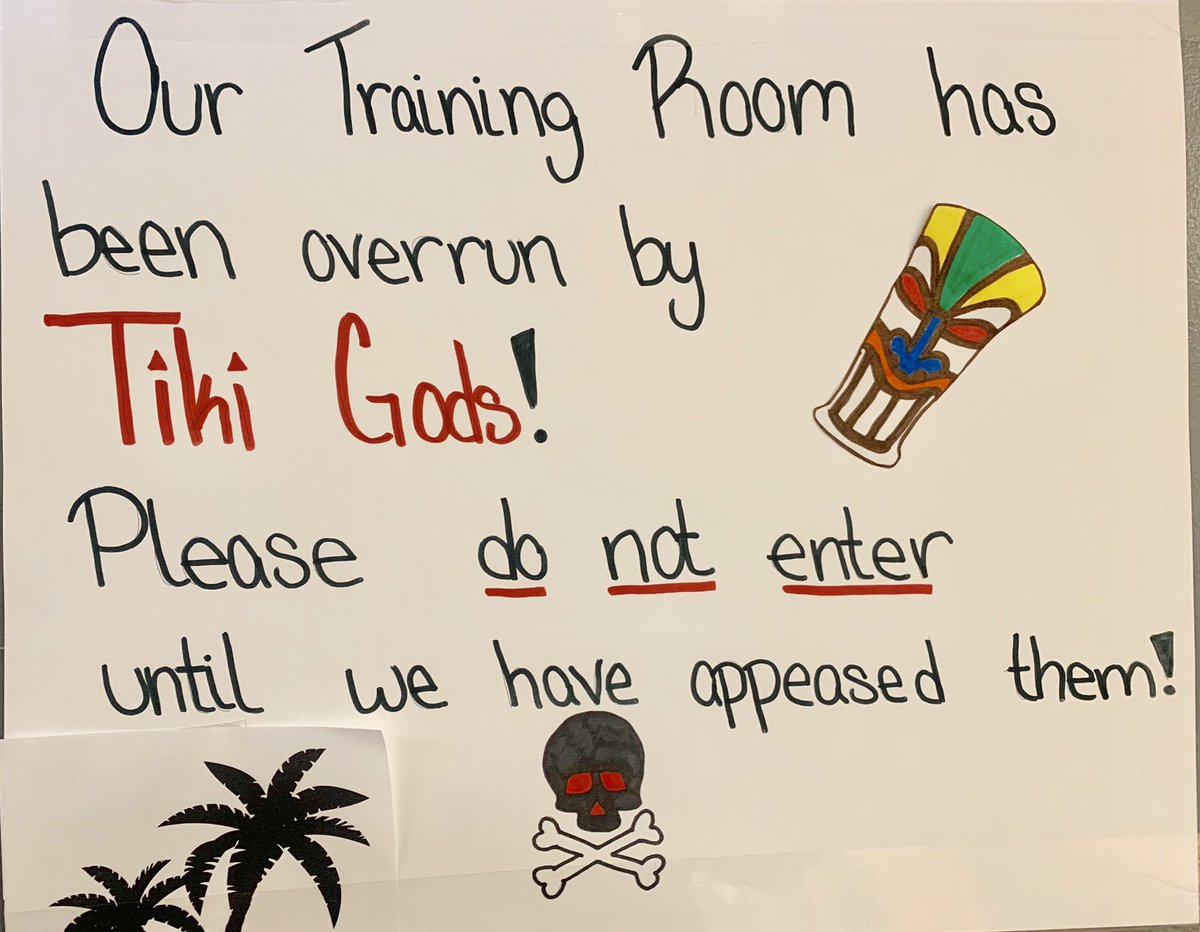 Our Training Room has
been overrun by
Tiki Gods!
Please do not enter
until we have appeased them!